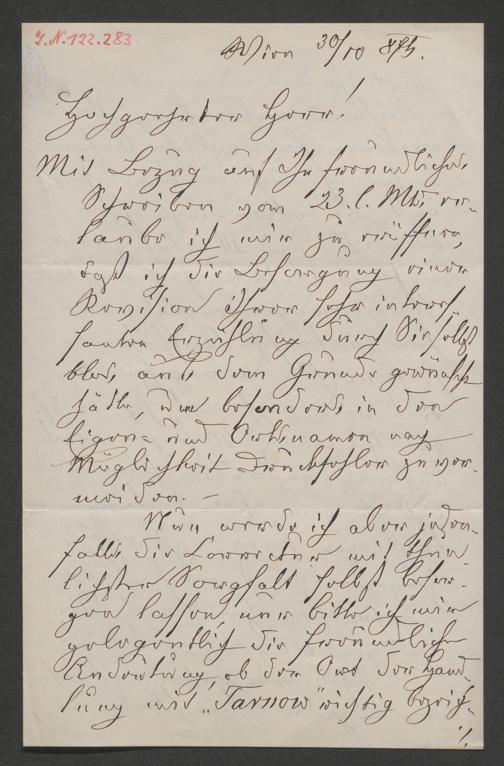 I.N. 122.283
Wien 30/10 875.
Hochgeehrter Herr!
Mit Bezug auf Ihr freundliches
Schreiben vom 23. l. Mts. er-
laube ich mir zu eröffnen,
daß ich die Besorgung einer
Revision Ihrer sehr interes-
santen Erzählung durch Sie selbst
blos aus dem Grunde gewünscht
hätte, um besonders in den
Eigen- und Ortsnamen nach
Möglichkeit Druckfehler zu ver-
meiden. –
Nun werde ich aber jeden-
falls die Correctur mit thun-
lichster Sorgfalt selbst besor-
gen lassen, nur bitte ich mir
gelegentlich die freundliche
Andeutung, ob der Ort der Hand-
lung mit „Tarnow" richtig bezeich-
./.